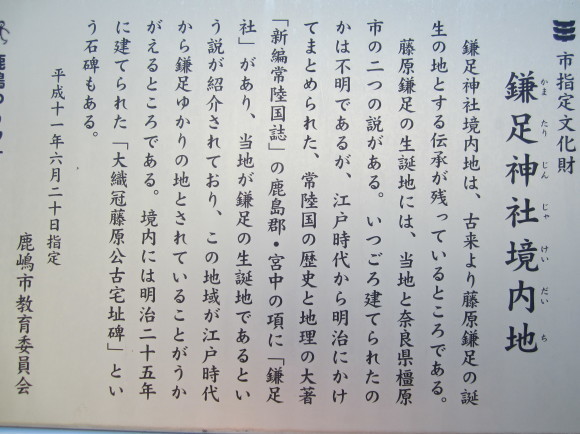 市指定文化財
鎌足神社境内地
かま たり じん じゃ けい だい ち
鎌足神社境内地は、古来より藤原鎌足の誕
生の地とする伝承が残っているところである。
藤原鎌足の生誕地には、当地と奈良県橿原
市の二つの説がある。いつごろ建てられたの
かは不明であるが、江戸時代から明治にかけ
てまとめられた、常陸国の歴史と地理の大著
「新編常陸国誌」の鹿島郡・宮中の項に「鎌足
社」があり、当地が鎌足の生誕地であるとい
う説が紹介されており、この地域が江戸時代
から鎌足ゆかりの地とされていることがうか
がえるところである。境内には明治二十五年
に建てられた「大織冠藤原公古宅址碑」とい
う石碑もある。
平成十一年六月二十日指定
鹿嶋市教育委員会